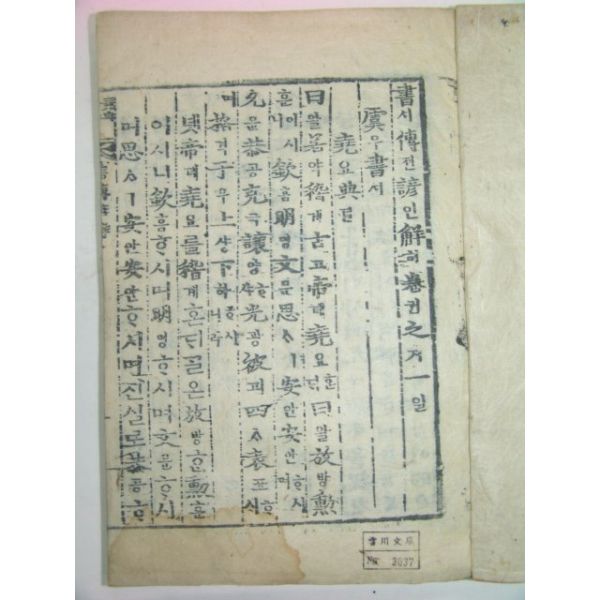 書셔傳젼諺언解ᄒᆡ卷권之지一일
虞우書셔
堯요典뎐
曰왈若약稽계古고帝뎨堯요ᄒᆞᆫᄃᆡ曰왈放방勳
훈이시니欽흠明명文문思ᄉᆞㅣ安안安안ᄒᆞ시며
允윤恭공克극讓양ᄒᆞ샤光광被피四ᄉᆞ表표ᄒᆞ시
며格격于우上샹下하ᄒᆞ시니라
녯帝뎨堯요를稽계혼ᄃᆡᄀᆞᆯ온放방勳훈
이시니欽흠ᄒᆞ시며明명ᄒᆞ시며文문ᄒᆞ시
며思ᄉᆞㅣ安안安안ᄒᆞ시며진실로恭공ᄒᆞ
No 3037